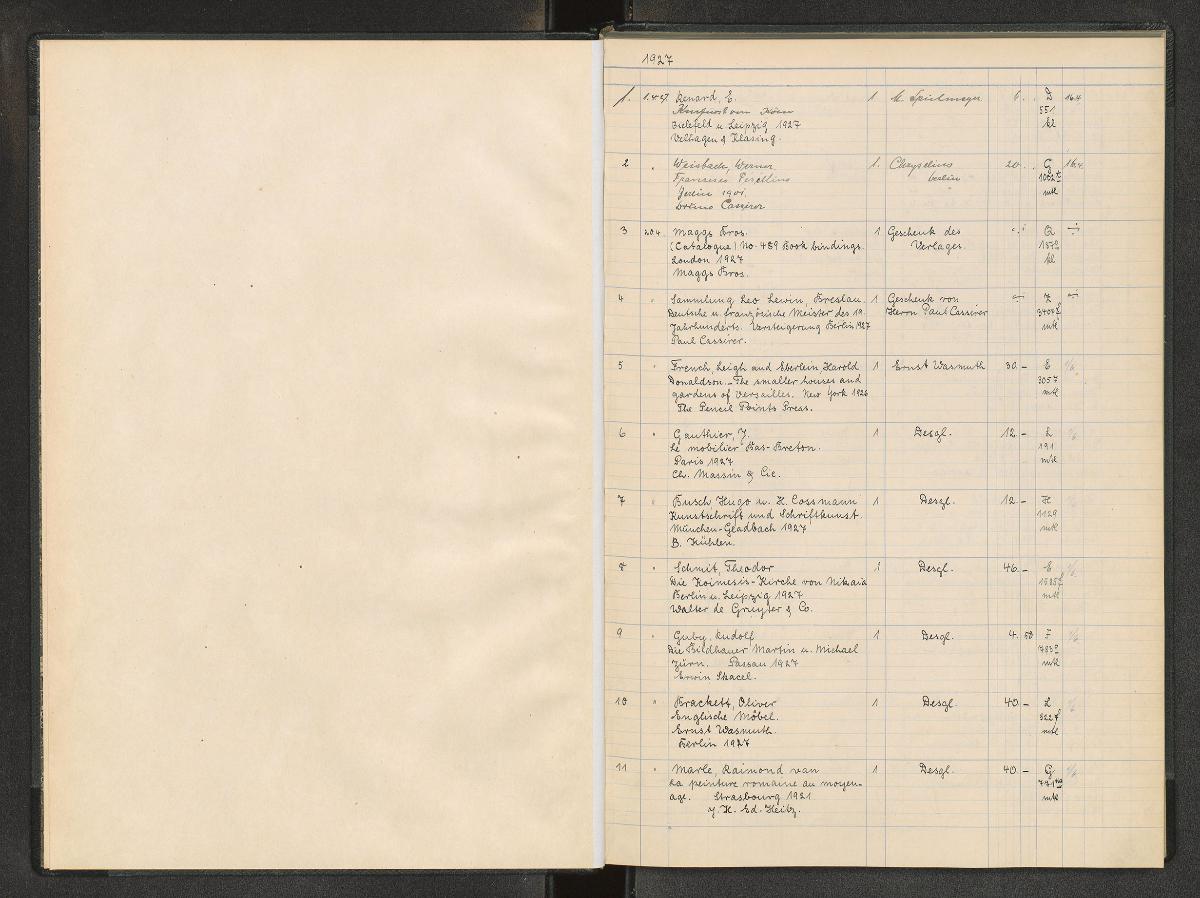 1927
1. 1.4.27. Renard, E. 1 M. Spielmeyer 6. D 16.4
Kurfürst von Köln 551
Bielefeld u. Leipzig 1927 kl
Velhagen & Klasing.
2 " Weisbach, Werner 1. Chryselius 20. G 16.4
Francesco Pesellino Berlin
Berlin 1901. mtl
Bruno Cassirer
3 20.4. Maggs Bros. 1 Geschenk des
(Catalogue) No. 489 Book bindings. Verlages.
London 1927 kl
Maggs Bros.
4 " Sammlung Leo Lewin, Breslau. 1 Geschenk von
Deutsche u. französische Meister des 19. Herrn Paul Cassirer
Jahrhunderts. Versteigerung Berlin 1927 mtl
Paul Cassirer.
5 " French, Leigh and Eberlein Harold 1 Ernst Wasmuth 30.– E
Donaldson. – The smaller houses and 3057
gardens of Versailles. New York 1926 mtl
The Pencil Points Press.
6 " Gauthier, J. 1 Desgl. 12.– L
Le mobilier Bas-Breton. 191
Paris 1927 mtl
Ch. Massin & Cie.
7 " Busch, Hugo u. H. Cossmann 1 Desgl. 12.– H
Kunstschrift und Schriftkunst. 1129
München-Gladbach 1927 mtl
B. Kühlen.
8 " Schmit, Theodor 1 Desgl. 46.– E
Die Koimesis-Kirche von Nikaia
Berlin u. Leipzig 1927 mtl
Walter de Gruyter & Co.
9 " Guby, Rudolf 1 Desgl. 4.50 F
Die Bildhauer Martin u. Michael
Zürn. Passau 1927 mtl
Erwin Skacel.
10 " Brackett, Oliver 1 Desgl. 40.– L
Englische Möbel.
Ernst Wasmuth. mtl
Berlin 1927
11 " Marle, Raimond van 1 Desgl. 40.– G
La peinture romaine au moyen-
age. Strasbourg 1921 mtl
J. H. Ed. Heitz.